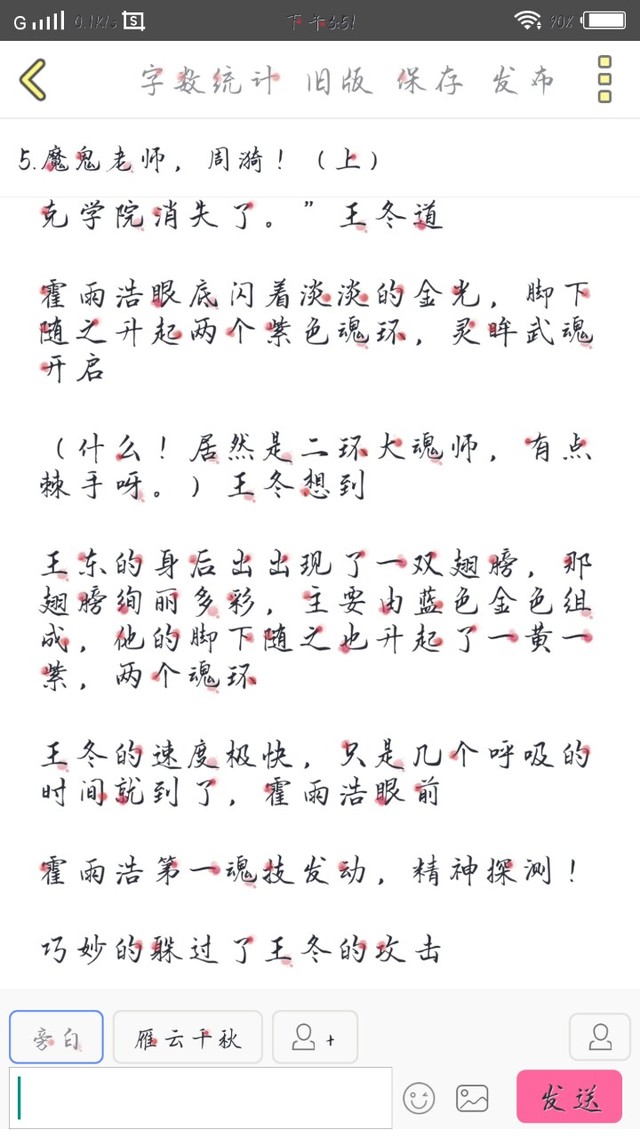 G 0.1K/s 下午3:51 90%
字数统计 旧版 保存 发布
5.魔鬼老师，周漪！（上）
克学院消失了。”王冬道
霍雨浩眼底闪着淡淡的金光，脚下
随之升起两个紫色魂环，灵眸武魂
开启
（什么！居然是二环大魂师，有点
棘手呀。）王冬想到
王东的身后出出现了一双翅膀，那
翅膀绚丽多彩，主要由蓝色金色组
成，他的脚下随之也升起了一黄一
紫，两个魂环
王冬的速度极快，只是几个呼吸的
时间就到了，霍雨浩眼前
霍雨浩第一魂技发动，精神探测！
巧妙的躲过了王冬的攻击
旁白 雁云千秋
发送